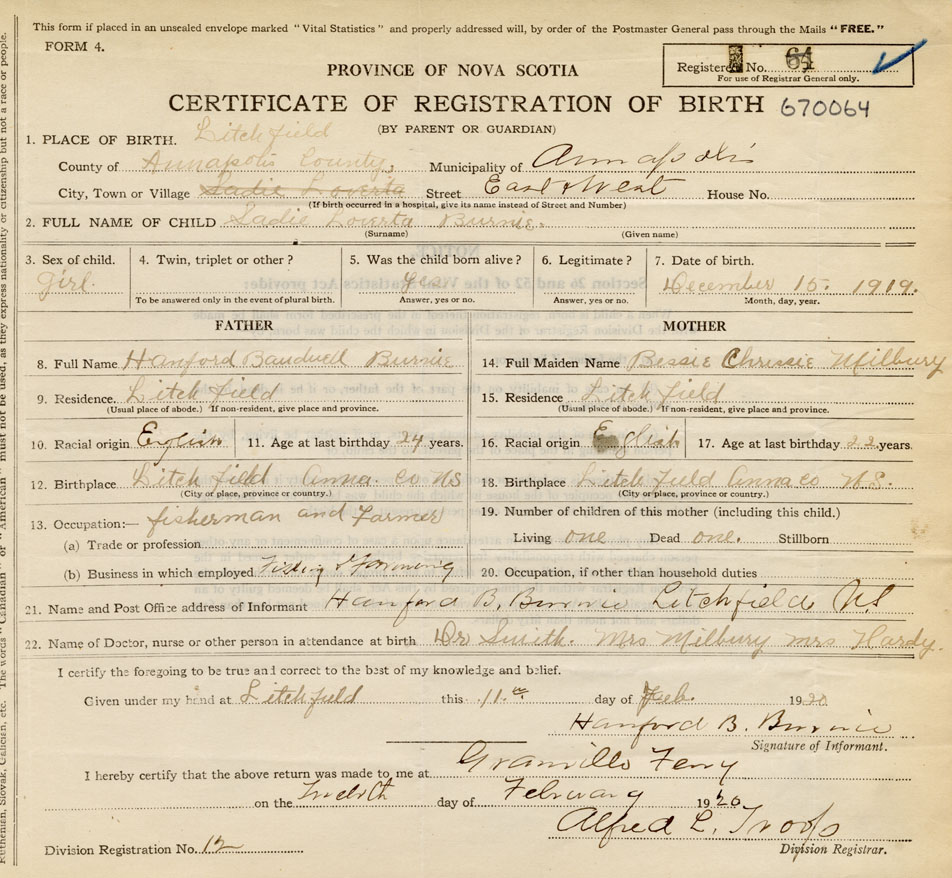 This form if placed in an unsealed envelope marked "Vital Statistics" and properly addressed will, by order of the Postmaster General pass through the Mails "FREE."
FORM 4.
Registered No. 64
For use of Registrar General only.
PROVINCE OF NOVA SCOTIA
CERTIFICATE OF REGISTRATION OF BIRTH 670064
(BY PARENT OR GUARDIAN)
1. PLACE OF BIRTH. Litchfield
County of Annapolis County, Municipality of Annapolis
City, Town or Village Sadie Loverta Street East & West House No.
(If birth occurred in a hospital, give its name instead of Street and Number)
2. FULL NAME OF CHILD Sadie Loverta Burnie.
(Surname) (Given name)
3. Sex of child. 4. Twin, triplet or other? 5. Was the child born alive? 6. Legitimate? 7. Date of birth.
Girl. yes December 15. 1919.
To be answered only in the event of plural birth. Answer, yes or no. Answer, yes or no. Month, day, year.
FATHER MOTHER
8. Full Name Hanford Burnie 14. Full Maiden Name Bessie Chrissie Milbury
9. Residence. Litchfield 15. Residence Litchfield
(Usual place of abode.) If non-resident, give place and province. (Usual place of abode.) If non-resident, give place and province.
10. Racial origin English 11. Age at last birthday 24 years. 16. Racial origin English 17. Age at last birthday 22 years.
12. Birthplace Litchfield Anna. Co NS 18. Birthplace Litchfield Anna co N.S.
(City or place, province or country.) (City or place, province or country.)
13. Occupation:— fisherman and Farmer 19. Number of children of this mother (including this child.)
(a) Trade or profession Living one Dead one. Stillborn
(b) Business in which employed Fishing & Farming 20. Occupation, if other than household duties
21. Name and Post Office address of Informant Hanford B. Burnie Litchfield NS
22. Name of Doctor, nurse or other person in attendance at birth Dr Smith. Mrs Milbury mrs Hardy.
I certify the foregoing to be true and correct to the best of my knowledge and belief.
Given under my hand at Litchfield this 11th day of Feb. 1920
Hanford B. Burnie
Signature of Informant.
I hereby certify that the above return was made to me at Granville Ferry
on the Twelfth day of February 1920
Alfred L. Troop
Division Registration No. 12 Division Registrar.
Ruthenian, Slovak, Galician, etc. The words "Canadian" or "American" must not be used, as they express nationality or citizenship but not a race or people.